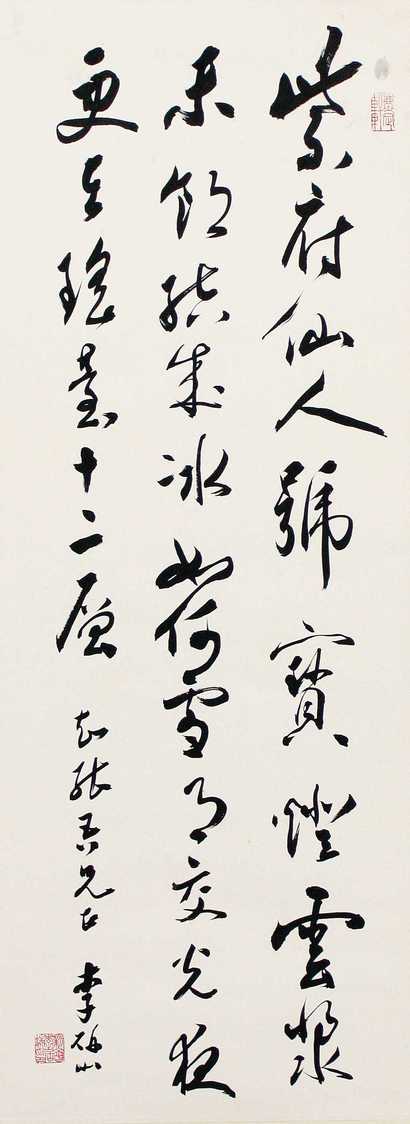 紫府仙人號寶燈雲漿
未飲結成冰如何雪月交光夜
更在瑤臺十二層 吾兄正 李研山